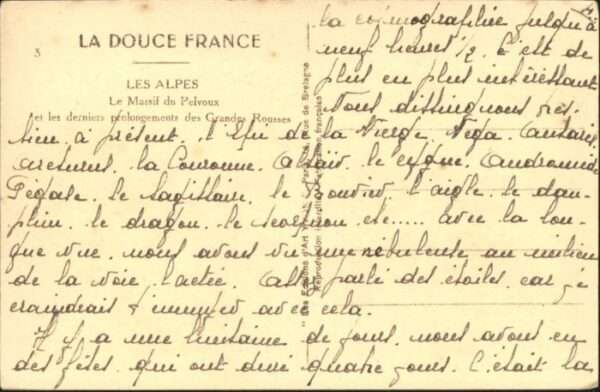 3
LA DOUCE FRANCE
LES ALPES
Le Massif du Pelvoux
et les derniers prolongements des Grandes Rousses
la cosmographie jusqu'à
neuf heures 1/2. C'est de
plus en plus intéressant
Nous distinguons très
bien, à présent, l'Epi de la Vierge, Vega, Antarès,
Arcturus, la Couronne, Altaïr, le cygne, Andromède
Pégase, le Sagittaire, le Bouvier, l'aigle, le dau-
phin, le dragon, le scorpion, etc..... avec la lon-
gue vue, nous avons vu une nébuleuse au milieu
de la voie lactée. parlé des étoiles, car je
craindrais t'ennuyer avec cela.
Il y a une huitaine de jours, nous avons eu
des fêtes, qui ont duré quatre jours. C'était la
de Bretagne
Reproduction interdite
françaises"